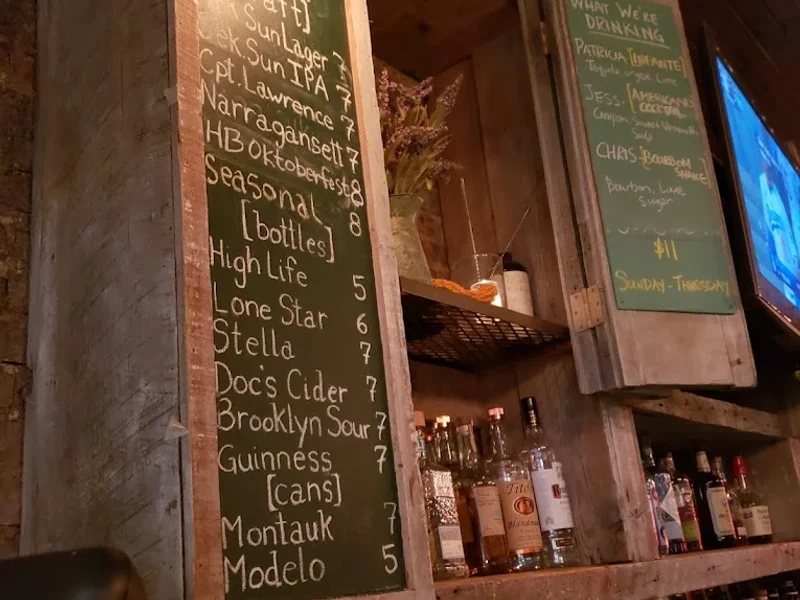 Sun Lager 7
Sun IPA 7
Cpt. Lawrence 7
Narragansett 7
HB Oktoberfest 8
Seasonal 8
[bottles]
High Life 5
Lone Star 6
Stella 7
Doc's Cider 7
Brooklyn Sour 7
Guinness 7
[cans]
Montauk 7
Modelo 5
WHAT WE'RE
DRINKING
PATRICIA [INFANTE]
JESS- [AMERICANO
COCKTAIL
Campari, Sweet Vermouth,
Soda
CHRIS- [BOURBON
Bourbon, Lime
Sugar
$11
SUNDAY - THURSDAY
Tito's
Handmade